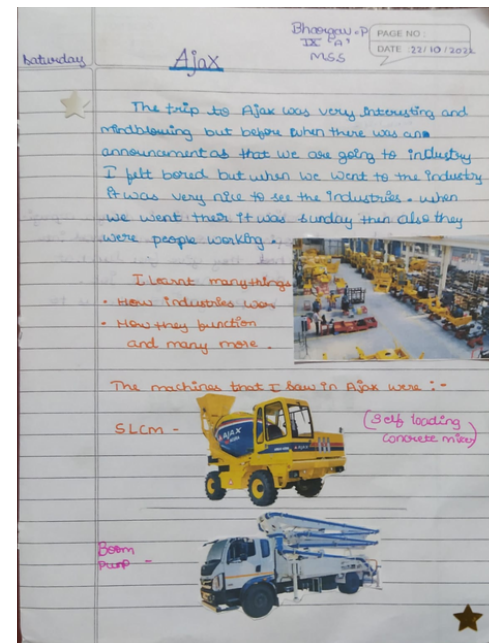 Bhargav.P
IX "A"
MSS
PAGE NO :
DATE : 22/10/202
Saturday
Ajax
The trip to Ajax was very interesting and
mindblowing but before when there was an
announcement as that we are going to industry
I felt bored but when we went to the industry
it was very nice to see the industries. when
we went their it was sunday then also they
were people working.
I Learnt many things
• How industries work
• How they function
and many more.
The machines that I saw in Ajax were :-
SLCM -
(Self loading
concrete mixer)
AJAX
AJAX
Boom
Pump -